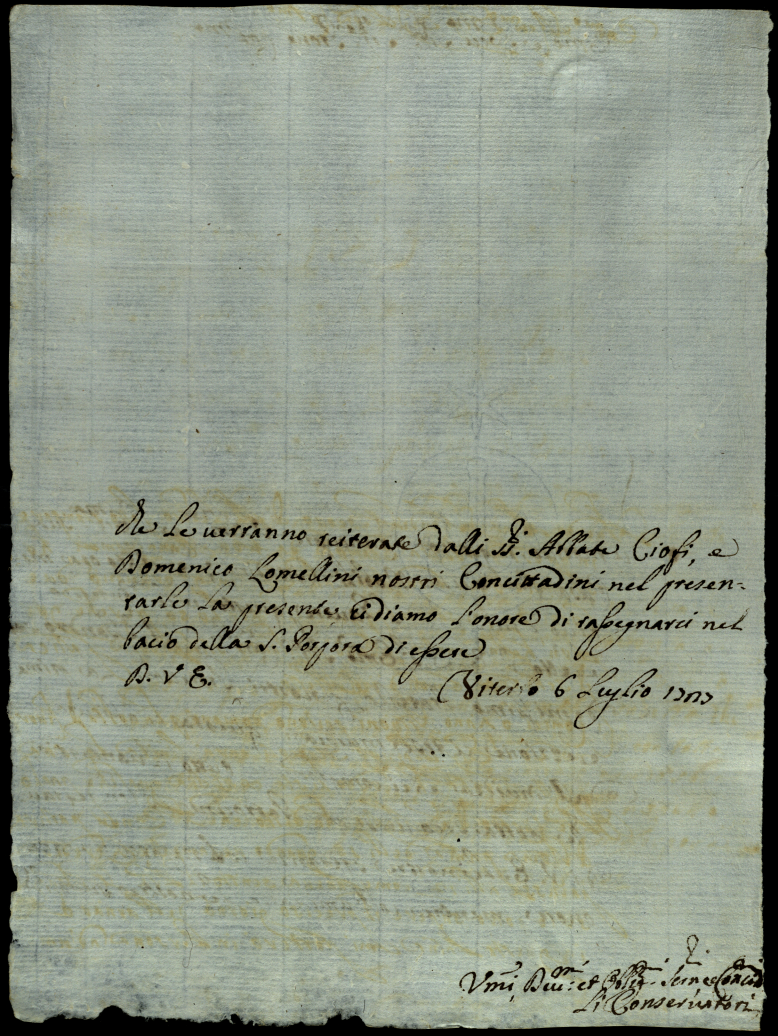 le verranno reiterate dalli SS.ri Abbate Ciofi, e
Domenico Lomellini nostri Concittadini nel presen=
tarle la presente, ci diamo l'onore di rassegnarci nel
bacio della S. Porpora di essere
D. V. E. Viterbo 6 Luglio
Umi, Devmi: et
Li Conservatori